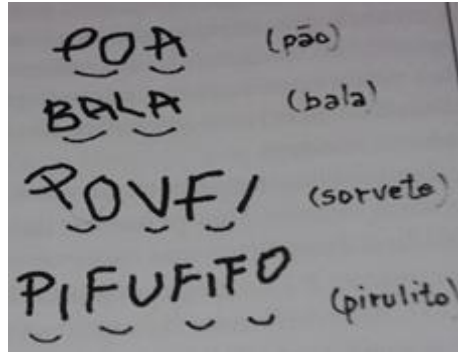 POA (pão)
BALA (bala)
POVEI (sorvete)
PIFUFIFO (pirulito)